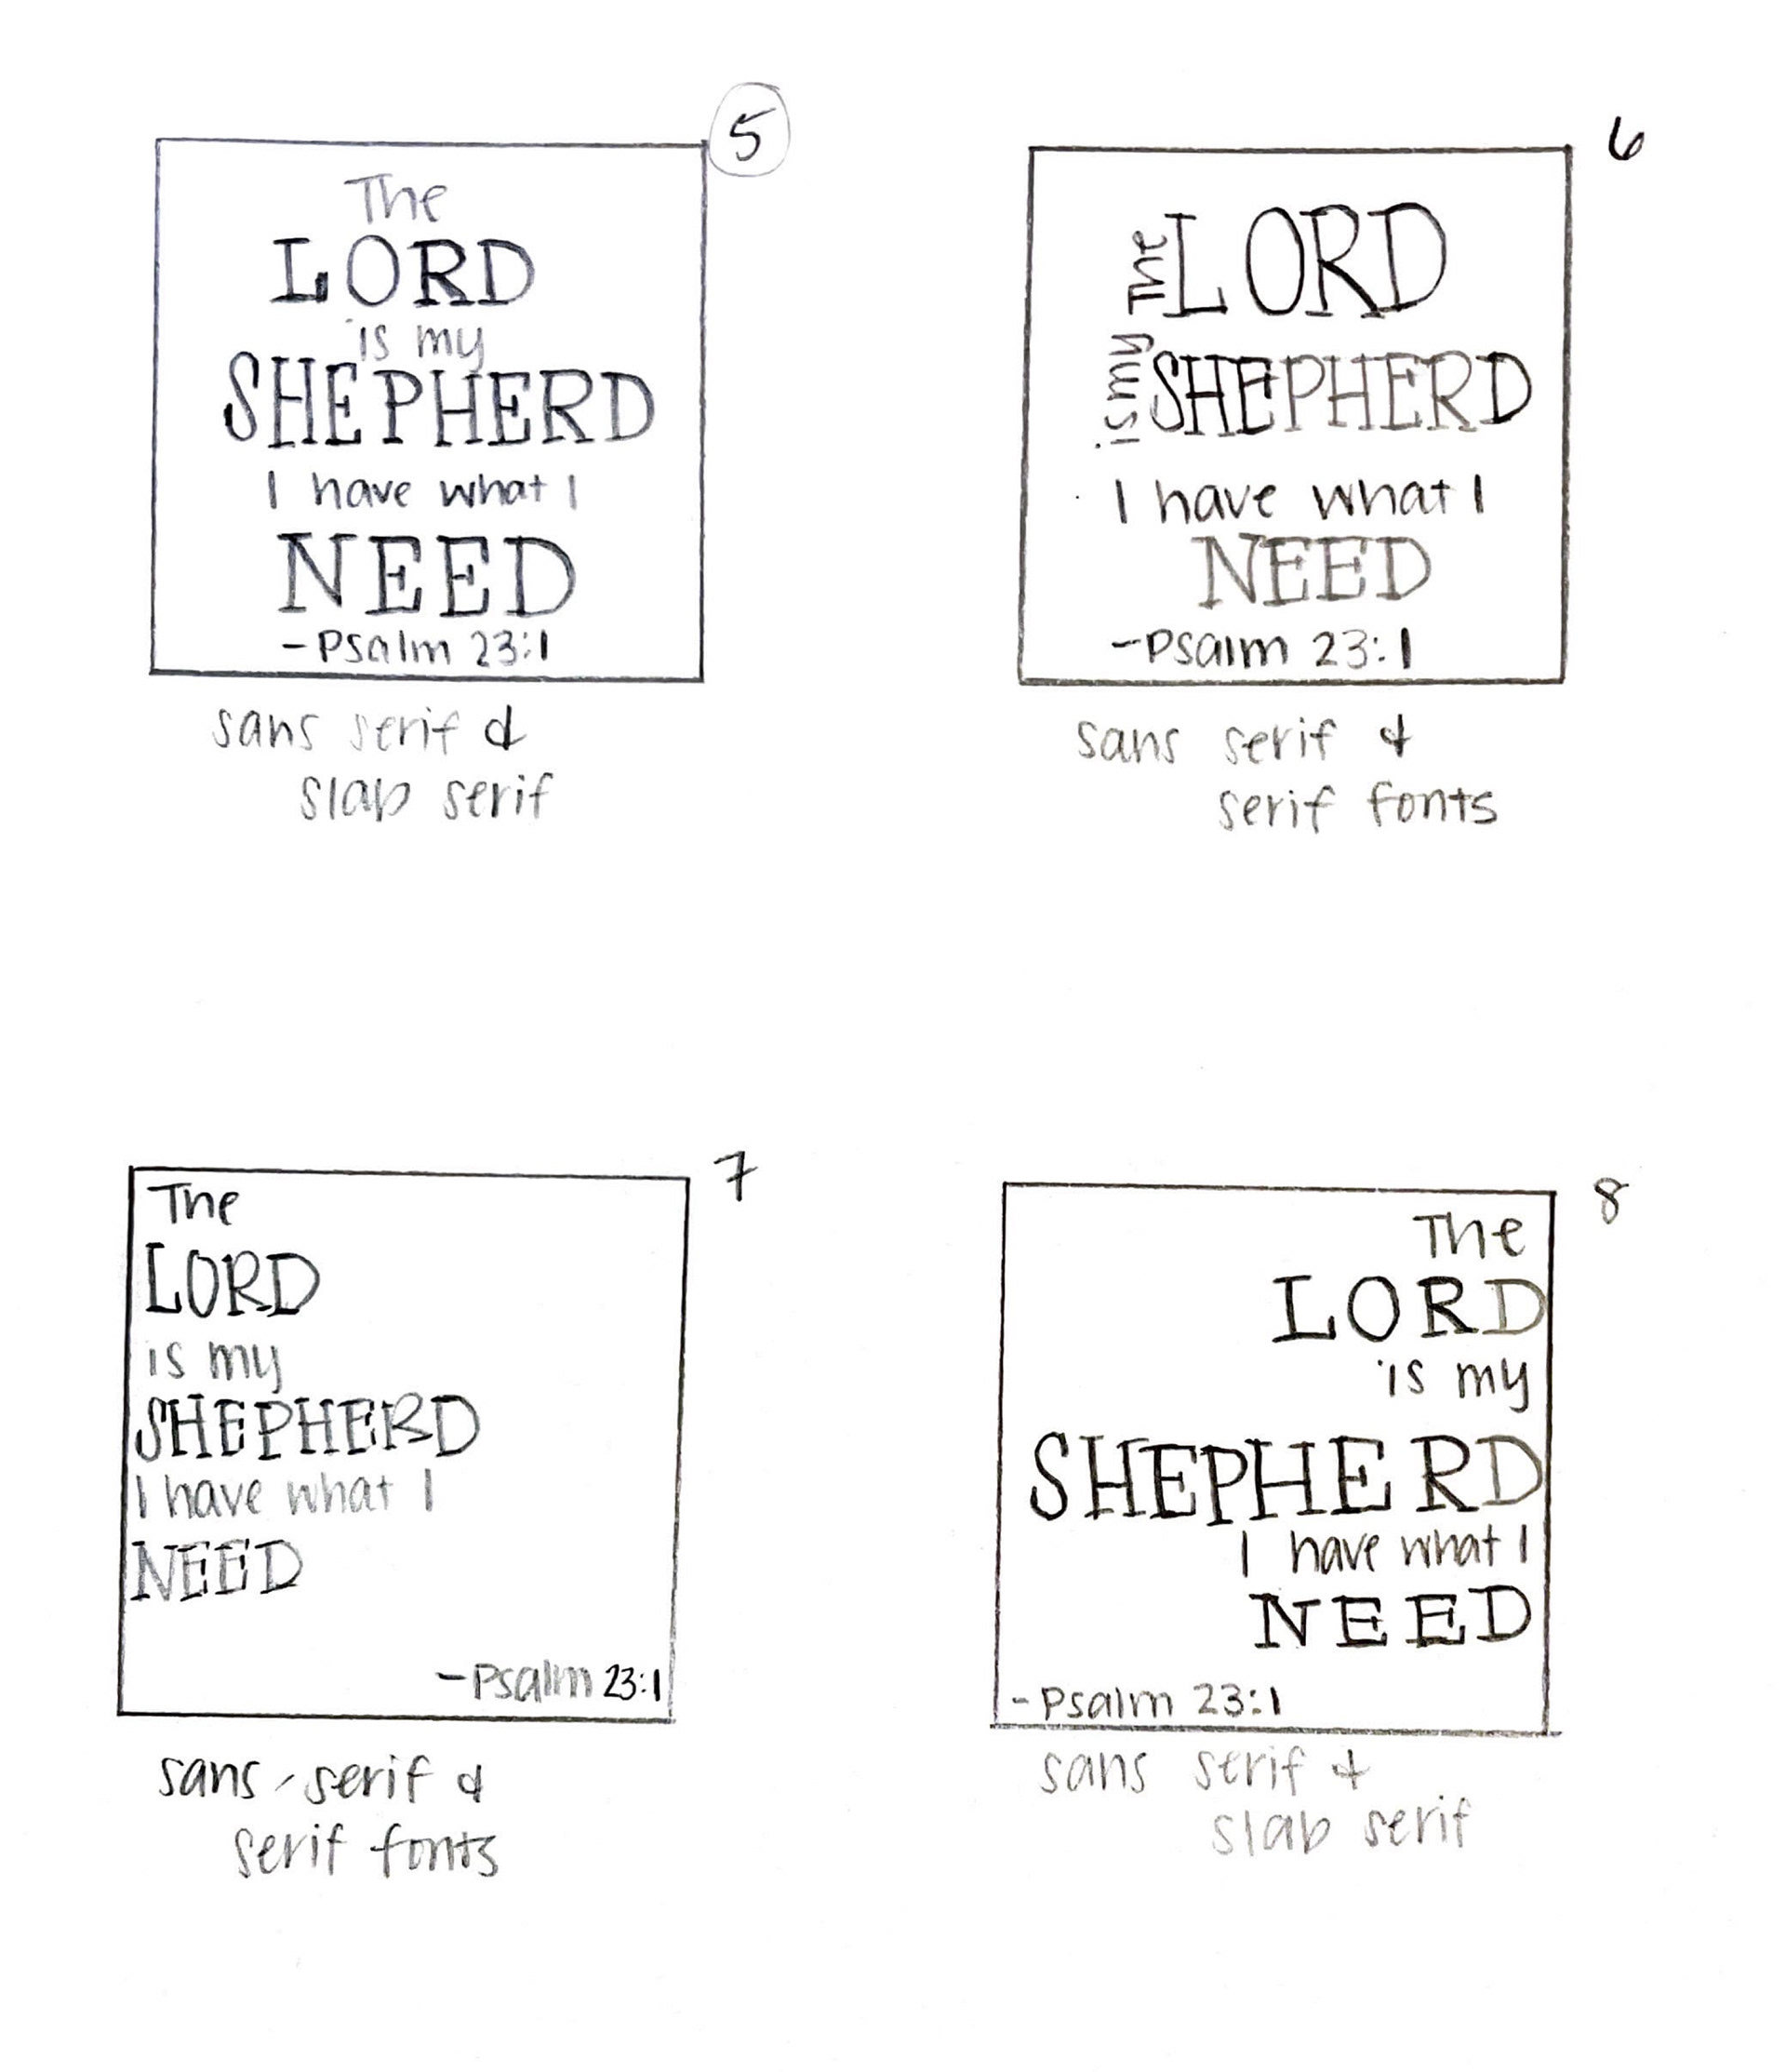 5
The
LORD
is my
SHEPHERD
I have what I
NEED
-Psalm 23:1
sans serif &
slab serif
6
The LORD
is my SHEPHERD
I have what I
NEED
-Psalm 23:1
sans serif &
serif fonts
7
The
LORD
is my
SHEPHERD
I have what I
NEED
-Psalm 23:1
sans-serif &
serif fonts
8
The
LORD
is my
SHEPHERD
I have what I
NEED
-Psalm 23:1
sans serif &
slab serif